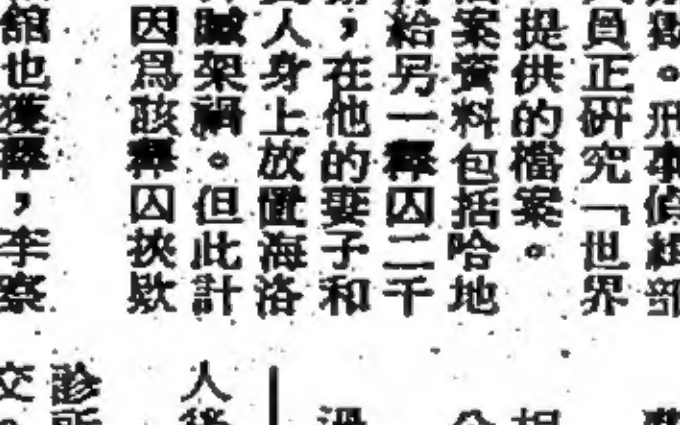 獄。刑事偵緝部
員正研究「世界
提供的檔案。
案資料包括哈地
給另一釋囚二千
，在他的妻子和
人身上放置海洛
贓架禍。但此計
因爲該釋囚挾款
也獲釋，李察
人
診所
交